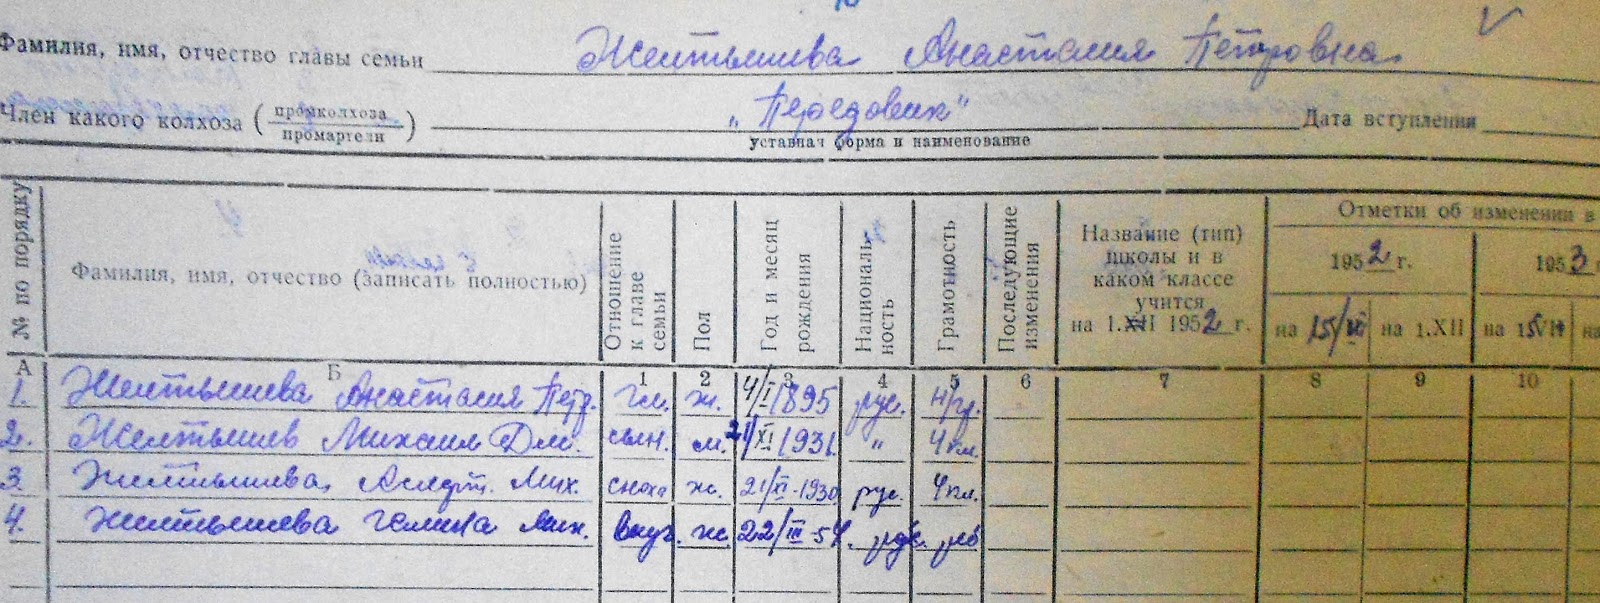 Фамилия, имя, отчество главы семьи Желтышева Анастасия Петровна
Член какого колхоза (промколхоза промартели) „Передовик" Дата вступления
уставная форма и наименование
№ по порядку
Фамилия, имя, отчество (записать полностью)
Отношение к главе семьи
Пол
Год и месяц рождения
Националь- ность
Грамотность
Последующие изменения
Название (тип) школы и в каком классе учится на 1.XII 1952 г.
Отметки об изменении в
1952 г. 1953
на 15/VI на 1.XII на 15VII на
А Б 1 2 3 4 5 6 7 8 9 10
1. Желтышева Анастасия Петр. гл. ж. 4/I 1895 рус. н/гр.
2. Желтышев Михаил Дм. сын. м. 21/XI 1931 „ 4 кл.
3 Желтышева Мих. сноха ж. 21/XI-1930 рус. 4 кл.
4. Желтышева Галина Мих. внуч. ж. 22/III-54. рус.